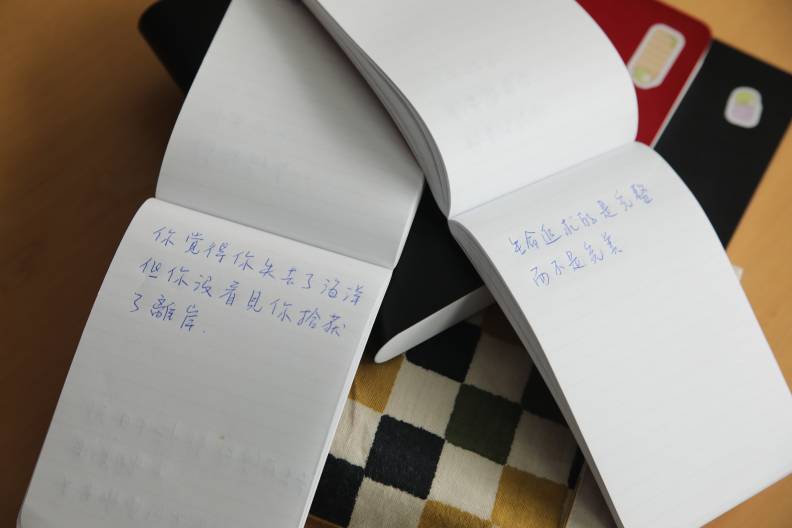 你覺得你失去了海洋
但你没看見你拾获
了離岸.
生命追求的是完整
而不是完美